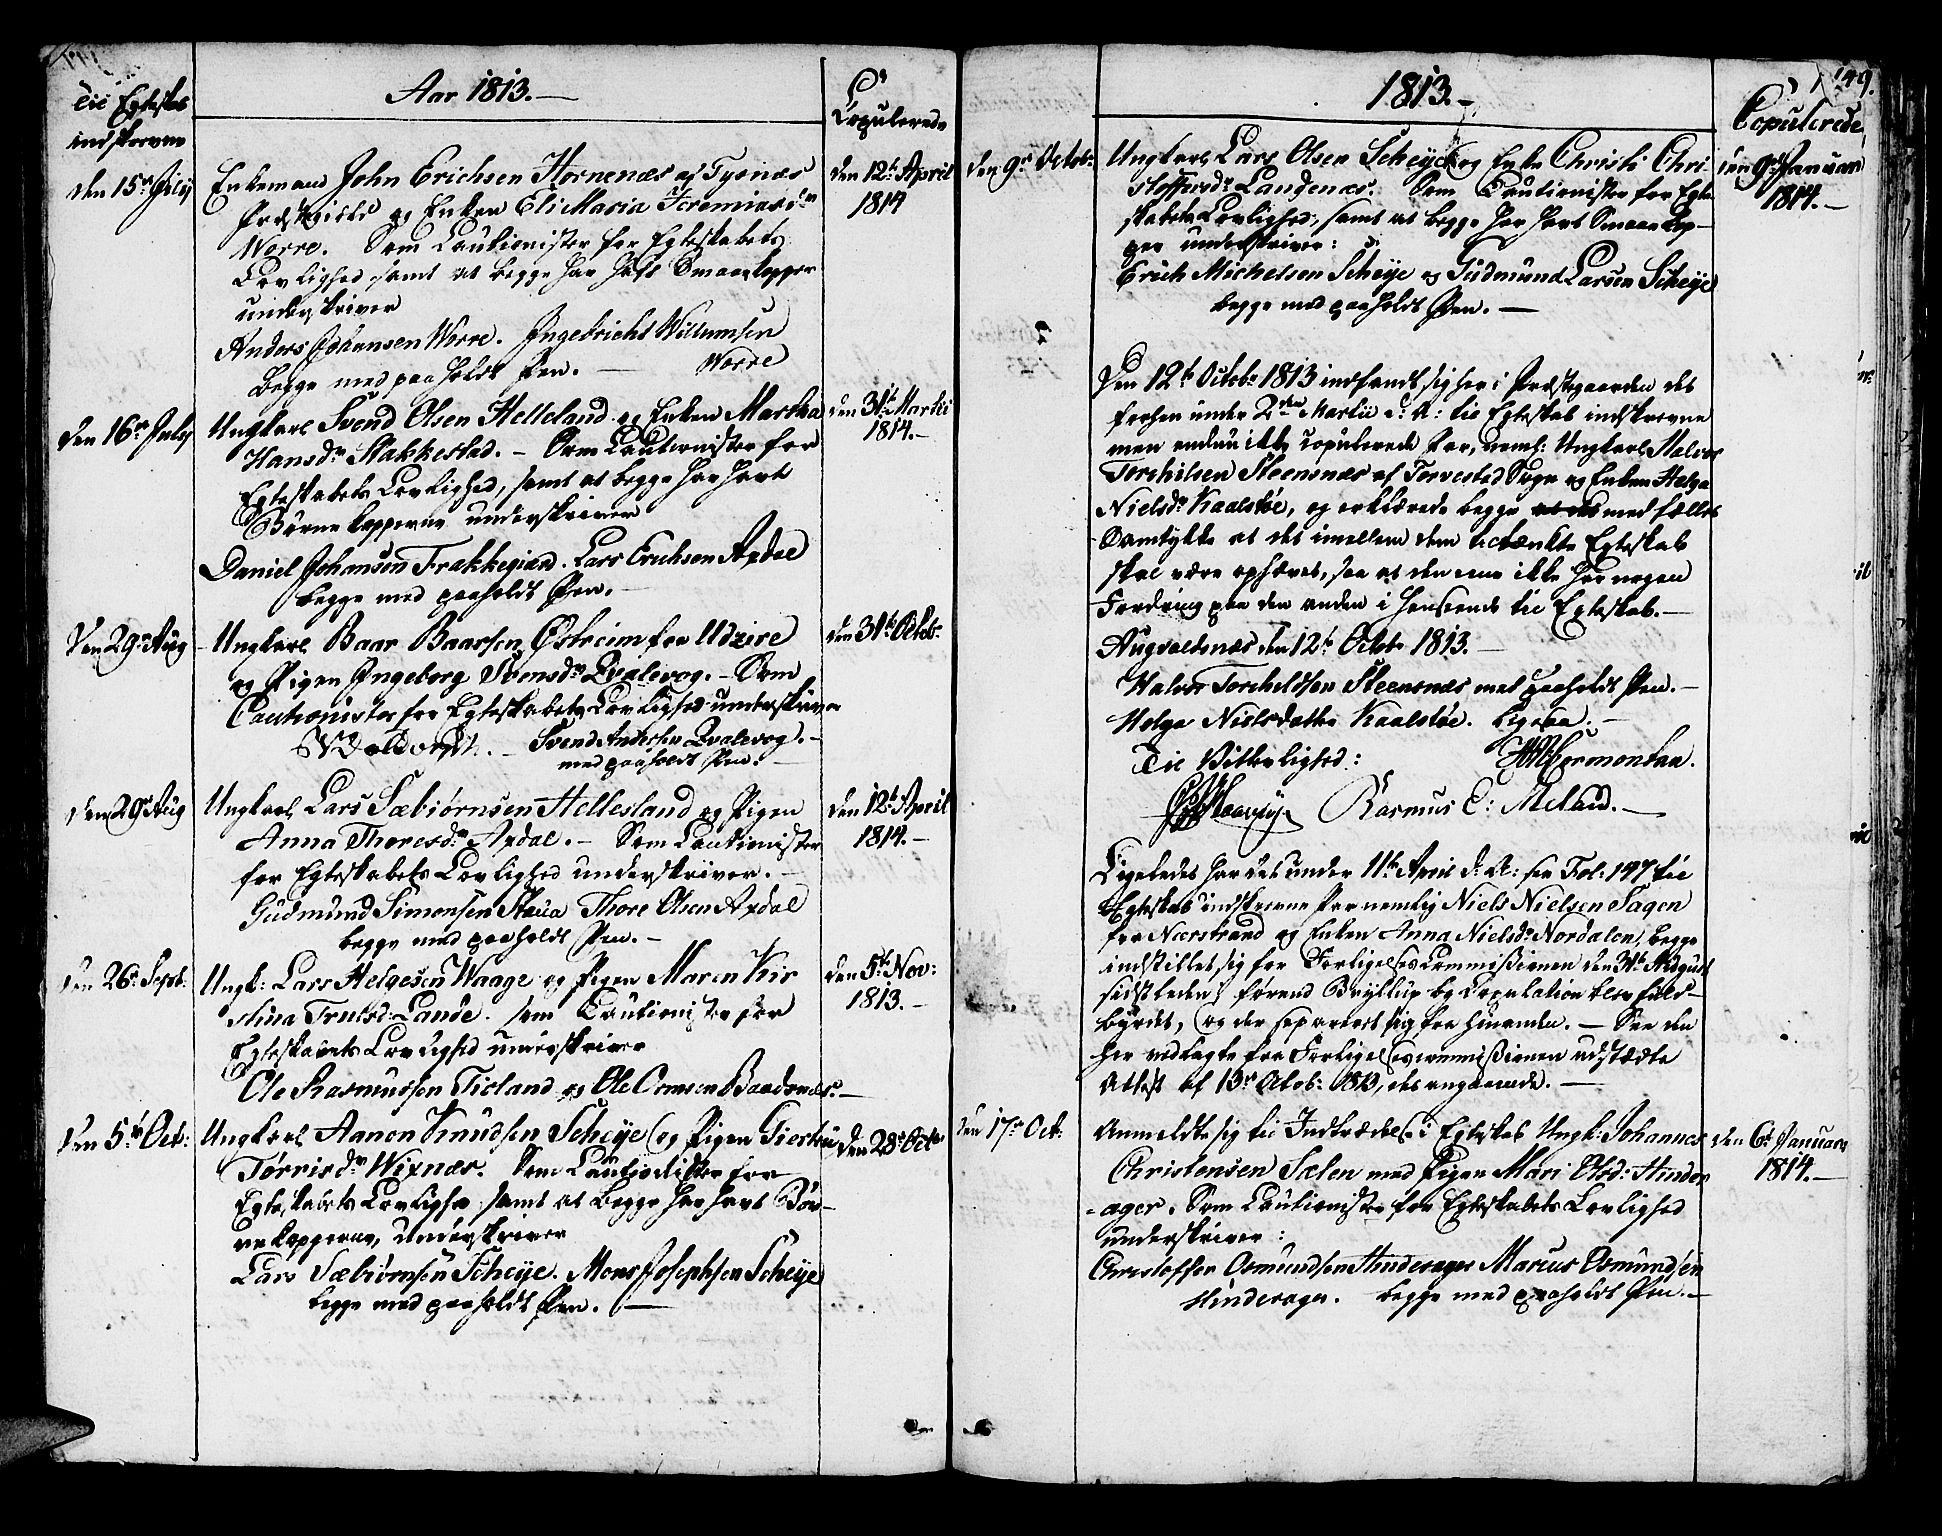 Til Egteskab
indskrevne
Aar 1813.—
Copulerede
den 15de July
Enkemand John Erichsen Hornenæs af Tysnæs
Præstegield og Enken Eli Maria Jeremiasdr
Worre. Som Cautionister for Egteskabets
Lovlighed samt at begge har haft Smaakopper
underskriver
Anders Johannsen Worre. Ingebricht Willumsen
Worre
begge med paaholdt Pen. —
den 12te April
1814
den 16de July
Ungkarl Svend Olsen Helleland og Enken Martha
Hansdr Stakkestad. — Som Cautionister for
Egteskabets Lovlighed, samt at begge har havt
Børnekopperne underskriver
Daniel Johansen Trækkegiærd. Lars Erichsen Axdal
begge med paaholdt Pen. —
den 31te Martii
1814.—
Den 29de Aug
Ungkarl Baar Baarsen Østreim fra Udzire
og Pigen Ingeborg Svensdr Qvalevog. — Som
Cautionister for Egteskabets Lovlighed underskriver
Svend Andersen Qvalevog. —
med paaholdt Pen. —
den 31te Octob:
den 29de Aug
Ungkarl Lars Sæbiørnsen Hellesland og Pigen
Anna Thoresdr Axdal. — Som Cautionister
for Egteskabets Lovlighed underskriver. —
Gudmund Simonsen Staua Thore Olsen Axdal
begge med paaholdt Pen. —
den 12te April
1814.—
den 26de Septb:
Ungk: Lars Helgesen Waage og Pigen Maren Kir
stina Trulsd: Lande. Som Cautionister for
Egteskabets Lovlighed underskriver
Ole Rasmussen Tieland og Ole Omsen Baadsnæs. —
den 5te Nov:
1813.—
Den 5te Oct:
Ungkarl Aanon Knudsen Scheye og Pigen Giertru
Tørrisdr Wixnæs. Som Cautionister for
Egteskabets Lovlighed samt at begge har havt Bør—
nekopperne, underskriver
Lars Sæbiørnsen Scheye. Mons Josephsen Scheye
begge med paaholdt Pen. —
den 28de Octo
149.
1813.—
Copulerede
den 9de Octob:
Ungkarl Lars Olsen Scheye og Enke Christi Chri
stoffersdr Langenæs. Som Cautionister for Egte
skabets Lovlighed, samt at begge har havt Smaakop—
per underskriver:
Erich Michelsen Scheye og Gudmund Larsen Scheye
begge med paaholdt Pen. —
den 9de Januari
1814.—
Den 12te Octobr 1813 indfandt sig her i Præstegaarden det
forhen under 2den Martii d: A: til Egteskab indskrevne
men endnu ikke copulerede Par, neml: Ungkarl Halvor
Torchilsen Steensnæs af Torvested Sogn og Enken Helga
Nielsdr Kaalstøe, og erklærede begge med fælles
Samtykke at det imellem dem tiltænkte Egteskab
skal være ophævet, saa at den ene ikke har nogen
Fordring paa den anden i henseende til Egteskab. —
Augvaldsnæs den 12te Octob 1813. —
Halvor Torchelsen Steensnæs med paaholdt Pen. —
Helga Nielsdatter Kaalstøe. ligesaa. —
Til Vitterlighed:
Rasmus C: Meland. —
Ligeledes har det under 11te April d: A: see Fol: 147 til
Egteskab indskrevne Par nemlig Niels Nielsen Sagen
fra Nærstrand og Enken Anna Nielsdr Nordalen, begge
indstillet sig for Forligelses Commissionen den 31te August
sidstleden, førend Bryllup og Copulation blev fuld—
byrdet, og der separeret sig fra hinanden. — See den
her vedlagte fra Forligelsescommissionen udstædte
Attest af 13de Octob: 1813, dets angaaende. —
den 17de Oct:
Anmeldte sig til Indtrædelse i Egteskab Ungk: Johannes
Christensen Sælen med Pigen Mari Olsd: Hinder
-ager. Som Cautionister for Egteskabets Lovlighed
underskriver:
Christoffer Osmundsen Hinderager Marcus Osmundsen
Hinderager. begge med paaholdt Pen. —
den 6te Januari
1814.—